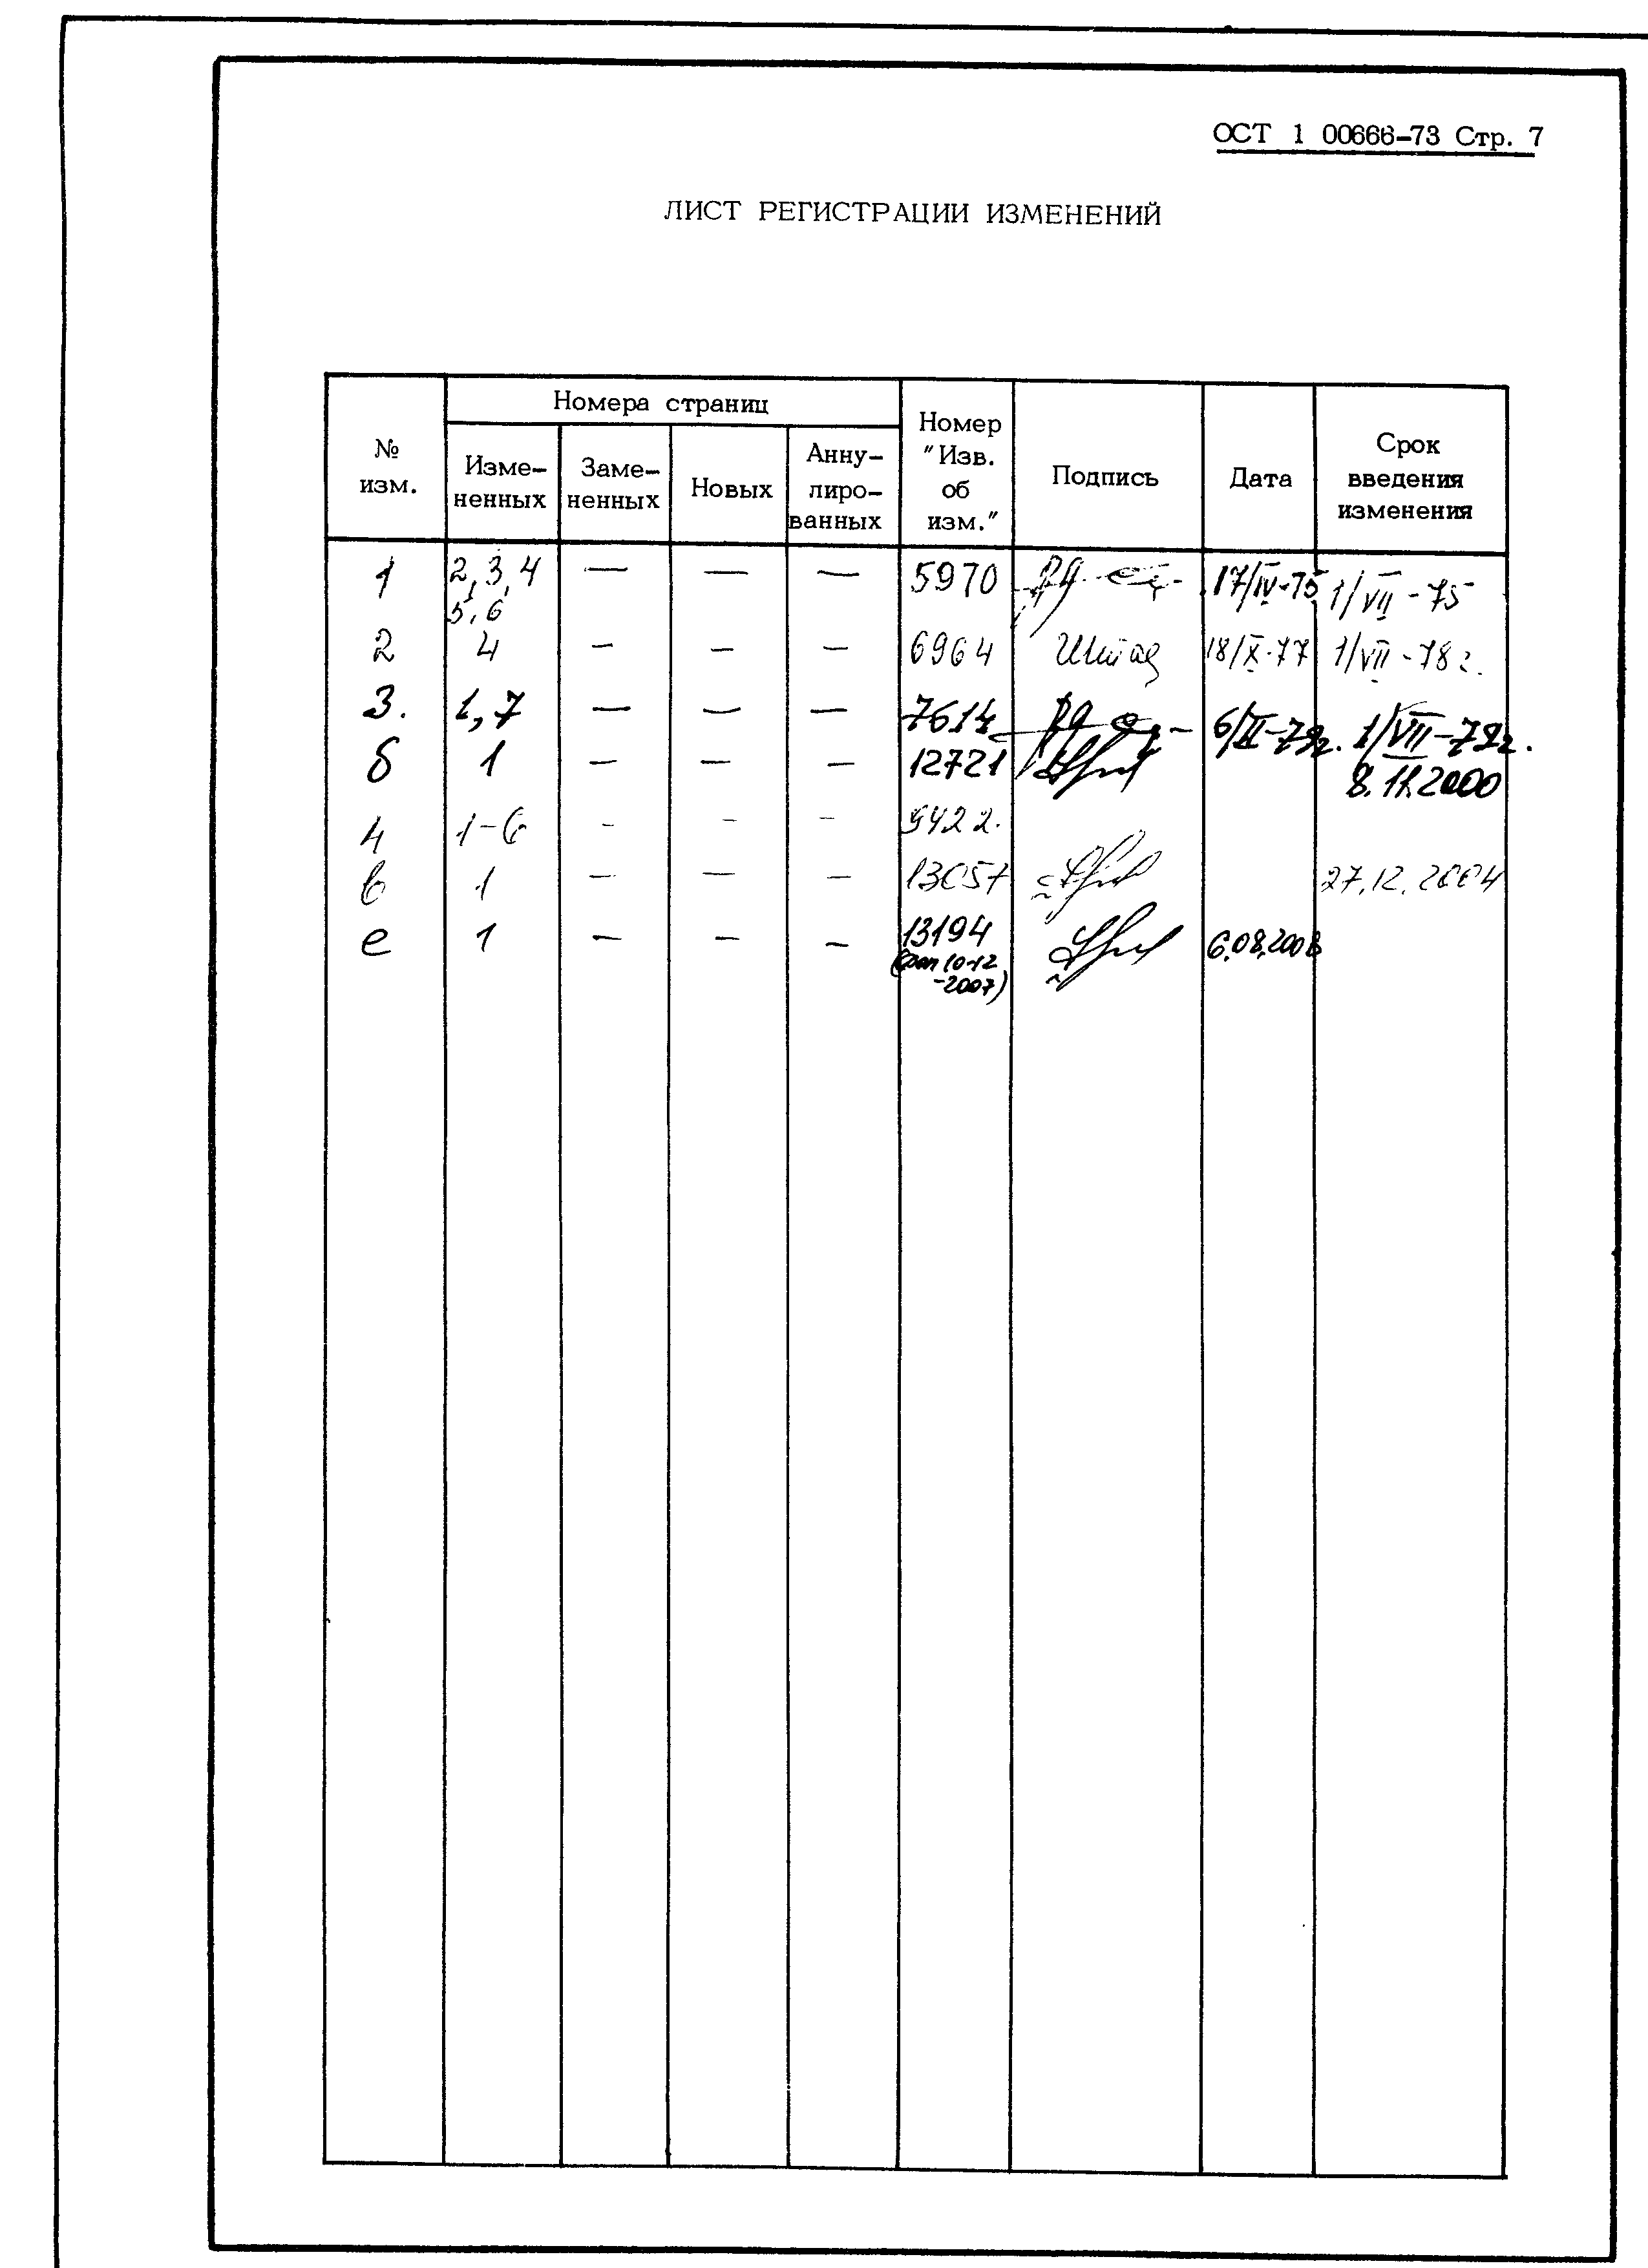 ОСТ 1 00666-73 Стр. 7
ЛИСТ РЕГИСТРАЦИИ ИЗМЕНЕНИЙ
№ изм.
Номера страниц
Изме-
ненных
Заме-
ненных
Новых
Анну-
лиро-
ванных
Номер
"Изв.
об
изм."
Подпись
Дата
Срок
введения
изменения
1 2,3,4 — — — 5970 17/IV-75 1/VII-75
5,6
2 4 — — — 6964 18/X-77 1/VII-78г.
3. 1,7 — — — 7614 6/II-79г. 1/VII-79г.
б 1 — — — 12721 8.11.2000
4 1-6 - - - 9422.
в 1 — — — 13057 27.12.2004
е 1 — — — 13194 6.08.2008
10-12
-2007)